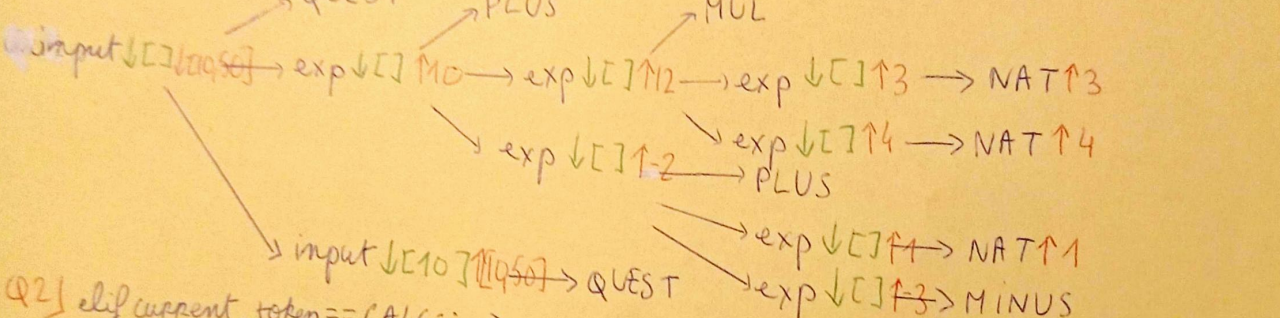 QUEST PLUS MUL
input↓[]↓[10,50] → exp↓[] ↑10 → exp↓[]↑12 → exp↓[]↑3 → NAT↑3
exp↓[]↑-2 exp↓[]↑4 → NAT↑4
→ PLUS
exp↓[]↑1 → NAT↑1
input↓[10]↑[10,50] → QUEST exp↓[]↑-3 → MINUS
Q2] elif current_token ==